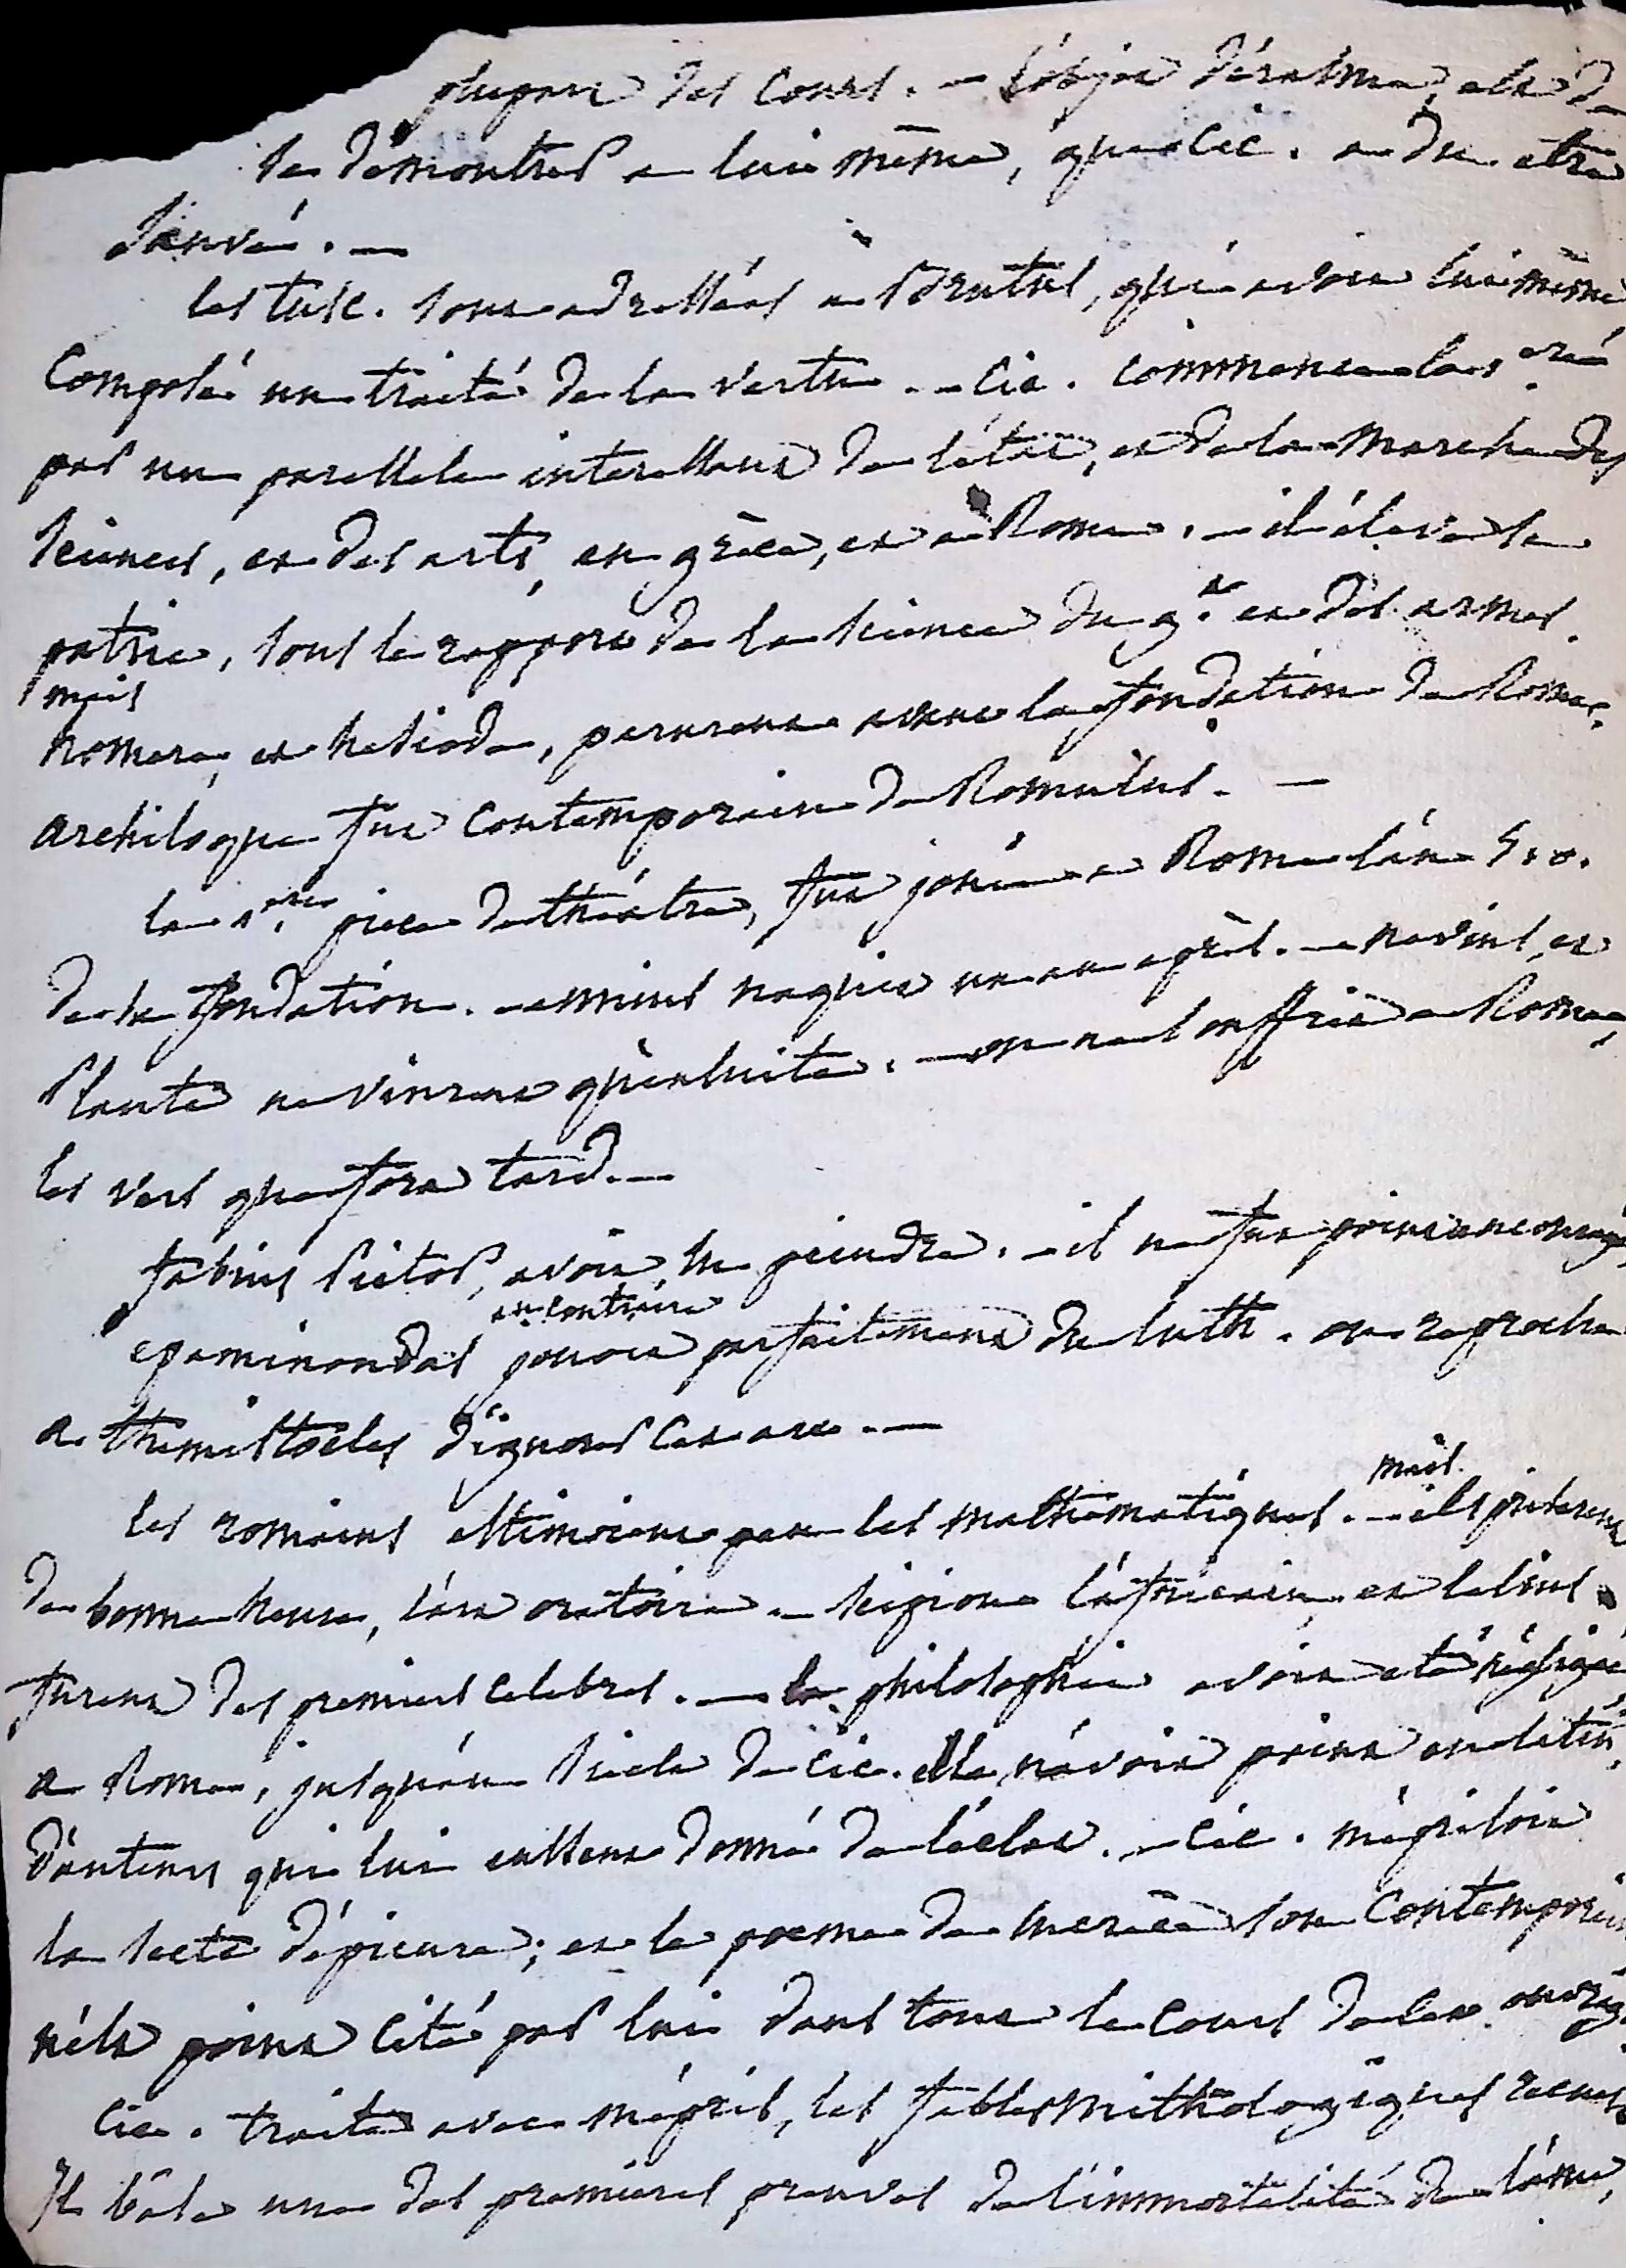 plupart des cours. — l'objet d'érasme, est de
se démontrer a lui même, que cic. a du etre
sauvé. —
les tusc. sont adressées a Brutus, qui avoit lui même
composé un traité de la vertu. — cic. commence la 1.ere
par un parallele interessant de l'état, et de la marche des
sciences, et des arts, en grèce, et a Rome. — il éleve sa
patrie, sous le rapport de la science du g.t et des armes.
mais
homere, et hesiode, parurent avant la fondation de Rome,
archiloque fut contemporain de Romulus. —
la 1.ere piece de théatre, fut jouée a Rome l'an 510.
de sa fondation. — ennius naquit un an après. — naevius, et
Plaute ne vinrent qu'ensuite. — on ne souffrit a Rome,
les vers que fort tard. —
fabius Pictor, avoit su peindre. — il ne fut point encouragé
au contraire
epaminondas jouoit parfaitement du luth. on reprocha
a themistocles d'ignorer cet art. —
mais
les romains estimoient peu les mathematiques. — ils priserent
de bonne heure, l'art oratoire. — scipion l'africain, et lelius
furent des premiers celebres. — la philosophie avoit eté négligée
a Rome, jusqu'au siecle de cic. elle n'avoit point eu de latin,
d'auteurs qui lui eussent donné de l'éclat. — cic. méprisoit
la secte d'épicure; et le poeme de lucrèce son contemporain
n'est point cité par lui dans tout le cours de ses ouvrag.
cic. traite avec mépris, les fables mithologiques recues
Il base une des premieres preuves de l'immortalité de l'ame,